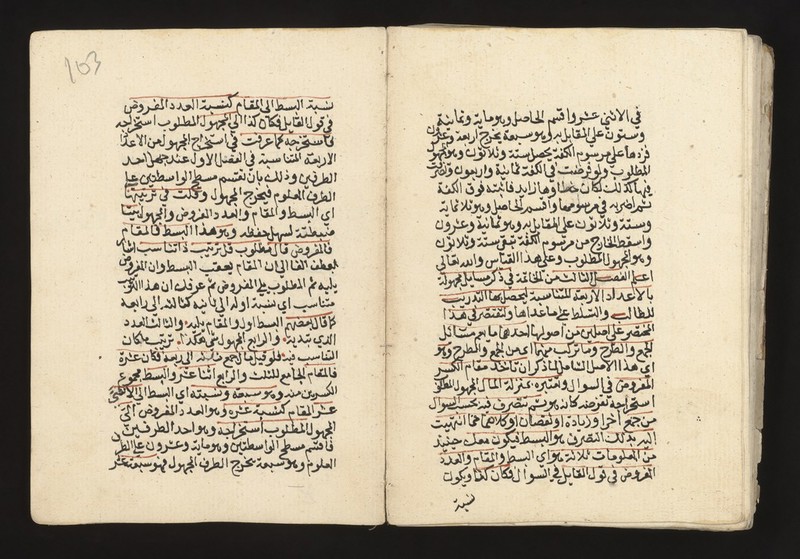 في الاثني عشر واقسم الحاصل وهو ماية وثمانية
وستون على المقابل به وهو سبعة يخرج اربعة وعشرون
زدها على مرسوم الكفة يحصل ستة وثلاثون وهو المجهول
المطلوب ولو فرضت في الكفة ثمانية واربعون واضرب
فيها كذلك لكان زايد فاثبته فوق الكفة
ثم اضربه في مرسومها واقسم الحاصل وهو ثلاثماية
وستة وثلاثون على المقابل به وهو ثمانية وعشرون
واسقط الخارج من مرسوم الكفة تبق ستة وثلاثون
وهو المجهول المطلوب وعلى هذا القياس والله تعالى
اعلم الفصل الثالث من الخاتمة في ذكر مسايل مجهولة
بالاعداد الاربعة المتناسبة ليحصل بها التدريب
للطالب والتسلط على ما عداها ولنقتصر في هذا
المختصر على اصلين من اصولها احدهما ما يعم مسائل
الجمع والطرح وما تركب منهما اي من الجمع والطرح وهو
اي هذا الاصل الشامل لما ذكر ان تاخذ مقام الكسر
المفروض في السوال وتعتبره بمنزلة المال المجهول المطلوب
استخراجه تفرضه كانه هو ثم تتصرف فيه بحسب السوال
من جمع اخر او زيادة او نقصان او كلاهما فما انتهيت
اليه بذلك التصرف هو البسط فيكون معك حينئذ
من المعلومات ثلاثة وهو اي البسط والمقام والعدد
المفروض في قول القايل في السوال فكان كذا ويكون
نسبة
103
نسبة البسط الى المقام كنسبة العدد المفروض
في قول القايل فكان كذا الى المجهول المطلوب استخراجه
فاستخرجه كما عرفت في استخراج المجهول من الاعداد
الاربعة المتناسبة في الفصل الاول عند جهل احد
الطرفين وذلك بان تقسم مسطح الواسطتين على
الطرف المعلوم فيخرج المجهول وقلت في ترتيبها
اي البسط والمقام والعدد المفروض والمجهول بيتا
ليسهل حفظه وهو هذا البسط فالمقام
فالمفروض قل مطلوب قل ترتيب ذا تناسب
بعطف الفا الى ان المقام يعقب البسط وان المفروض
يليه ثم المطلوب يلي المفروض ثم عرفك ان هذا الترتيب
متناسب اي نسبة اوله الى ثانيه كثالثه الى رابعه
كما قال بعضهم البسط اول والمقام يليه والثالث العدد
الذي تبديه والرابع المجهول ترتيب كان
التناسب فيه فلو قيل ما الجمع ثلثه الى ربعه فكان عشرة
فالمقام الجامع للثلث والربع اثنا عشر والبسط مجموع
الكسرين منه وهو سبعة ونسبته اي البسط الى الاثني
عشر المقام كنسبة عشرة وهو العدد المفروض الى
المجهول المطلوب استخراجه وهو احد الطرفين
فاقسم مسطح الواسطتين وهو ماية وعشرون على الطرف
المعلوم وهو سبعة يخرج الطرف المجهول فهو سبعة عشر